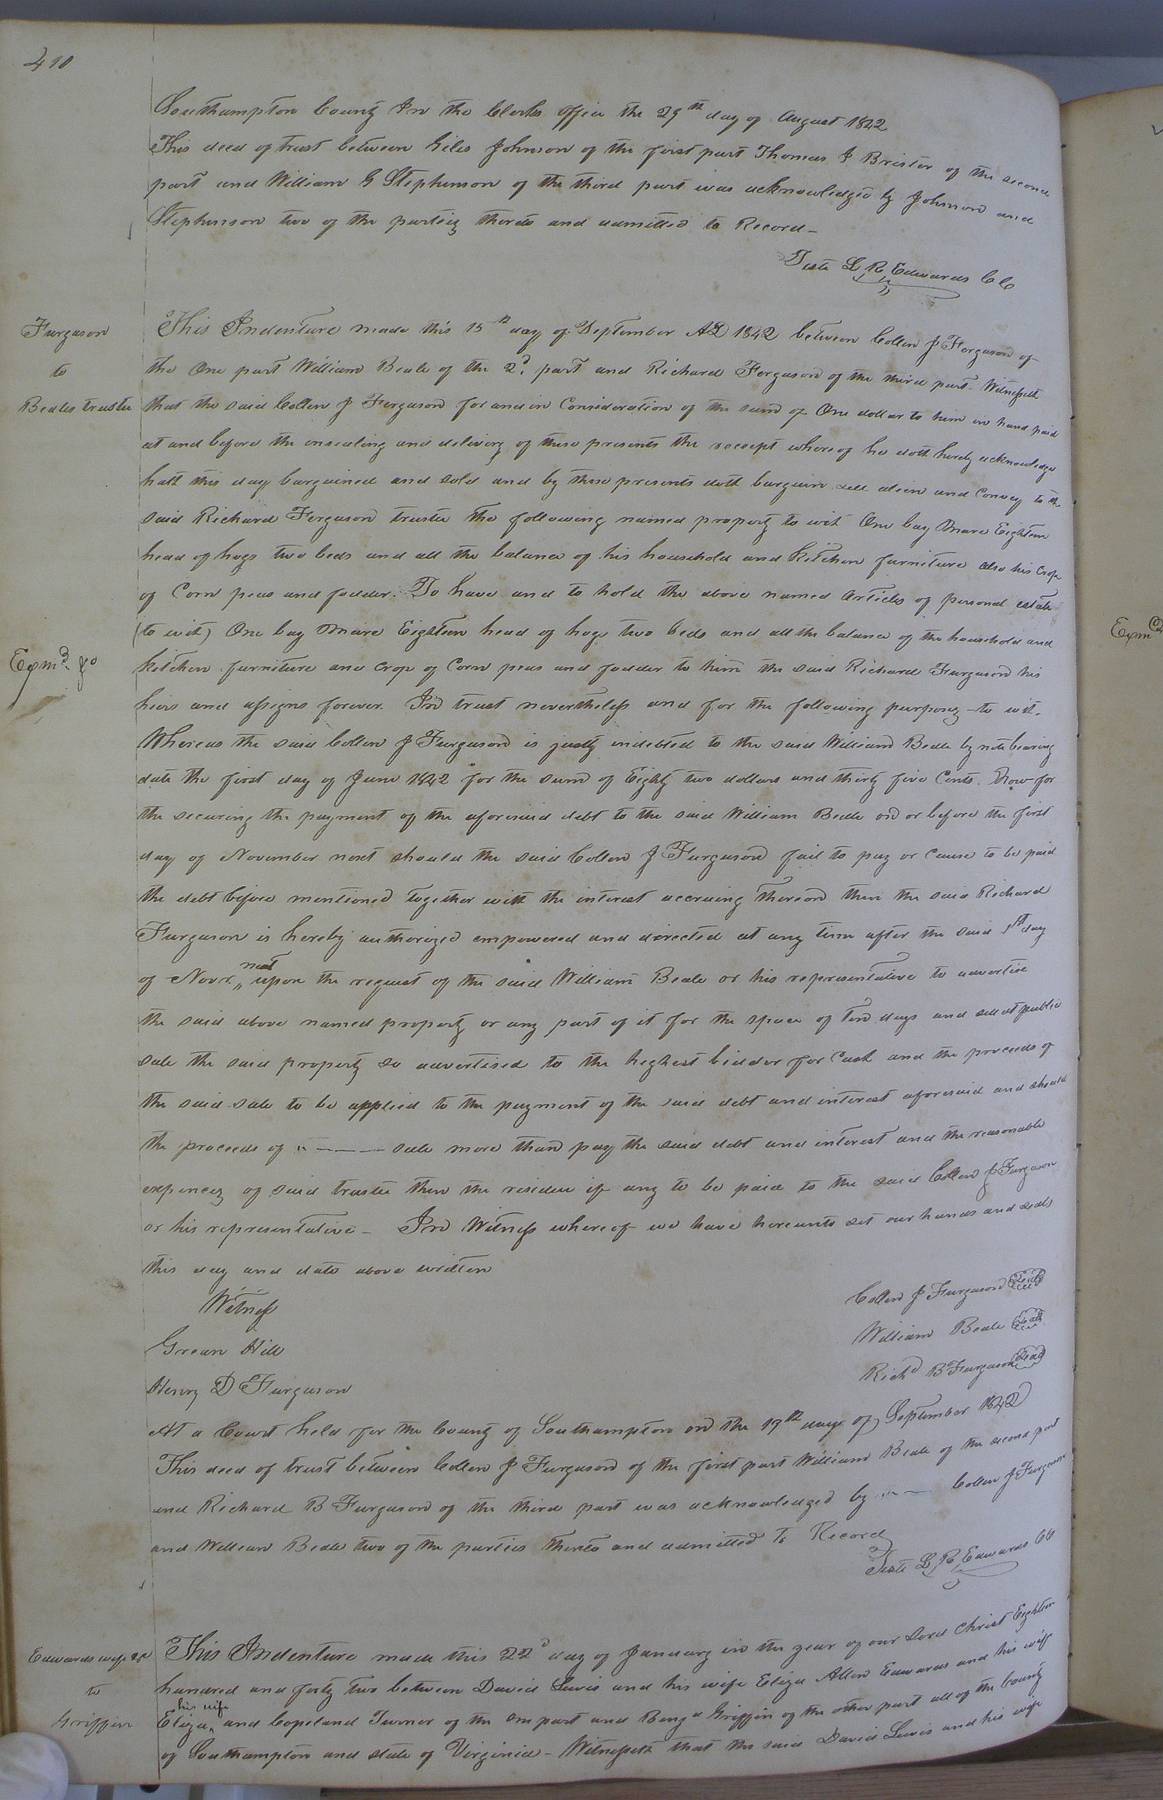 410
Southampton County In the Clerks office the 29th day of August 1842
This deed of trust between Giles Johnson of the first part Thomas J Brister of the second
part and William G Stephenson of the third part was acknowledged by Johnson and
Stephenson two of the parties thereto and admitted to Record -
Teste L R Edwards CC
Furgason
to
Beales trustee
This Indenture made this 15th day of September AD 1842 between Collen J Ferguson of
the One part William Beale of the 2d part and Richard Ferguson of the third part. Witnesseth
that the said Collen J Ferguson for and in Consideration of the sum of One dollar to him in hand paid
at and before the ensealing and delivery of these presents the receipt whereof he doth hereby acknowledge
hath this day bargained and sold and by these presents doth bargain sell alien and Convey to the
said Richard Ferguson trustee the following named property to wit One bay Mare Eighteen
head of hogs two beds and all the balance of his household and kitchen furniture also his Crop
of Corn peas and fodder. To have and to hold the above named Articles of personal estate
(to wit) One bay Mare Eighteen head of hogs two beds and all the balance of the household and
Exmd &c
kitchen furniture and Crop of Corn peas and fodder to him the said Richard Furgason his
heirs and assigns forever. In trust nevertheless and for the following purposes - to wit.
Whereas the said Collen J Furgason is justly indebted to the said William Beale by note bearing
date the first day of June 1842 for the sum of Eighty two dollars and thirty five Cents. Now for
the securing the payment of the aforesaid debt to the said William Beale on or before the first
day of November next should the said Collen J Furgason fail to pay or Cause to be paid
the debt before mentioned together with the interest accruing thereon then the said Richard
Furgason is hereby authorized empowered and directed at any time after the said 1st day
of Novr next upon the request of the said William Beale or his representative to advertise
the said above named property or any part of it for the space of Ten days and sell at public
sale the said property so advertised to the highest bidder for Cash and the proceeds of
the said sale to be applied to the payment of the said debt and interest aforesaid and should
the proceeds of " - - - sale more than pay the said debt and interest and the reasonable
expences of said trustee then the residue if any to be paid to the said Collen J Furgason
or his representative - In Witness whereof we have hereunto set our hands and seals
this day and date above written
Witness
Collen J Furgason Seal
Grean Hill
William Beale Seal
Henry D Furgason
Richd B Furgason Seal
At a Court held for the County of Southampton on the 19th day of September 1842
This deed of trust between Collen J Furgason of the first part William Beale of the second part
and Richard B Furgason of the third part was acknowledged by " - - Collen J Furgason
and William Beale two of the parties thereto and admitted to Record
Teste L R Edwards CC
Edwards wife &c
to
Griffin
This Indenture made this 22d day of January in the year of our Lord Christ Eighteen
hundred and forty two between David Lewis and his wife Eliza Allen Edwards and his wife
Eliza his wife and Copeland Turner of the One part and Benja Griffin of the other part all of the County
of Southampton and state of Virginia - Witnesseth that the said David Lewis and his wife
Exmd